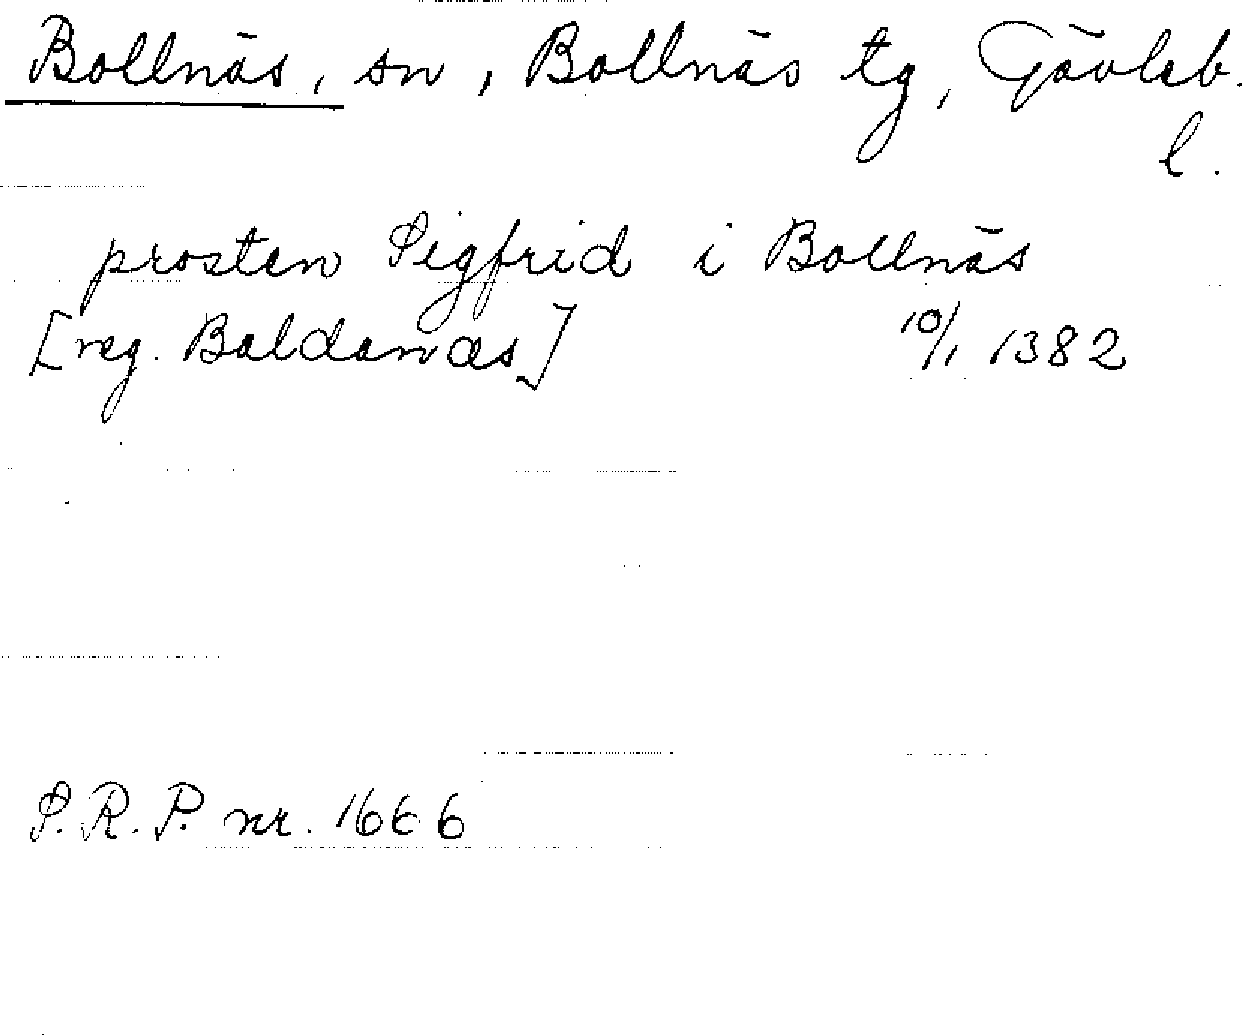 Bollnäs, sn, Bollnäs tg, Gävleb.
l.
prosten Sigfrid i Bollnäs
[reg. Baldanæs] 10/1 1382
S.R.P. nr. 1666